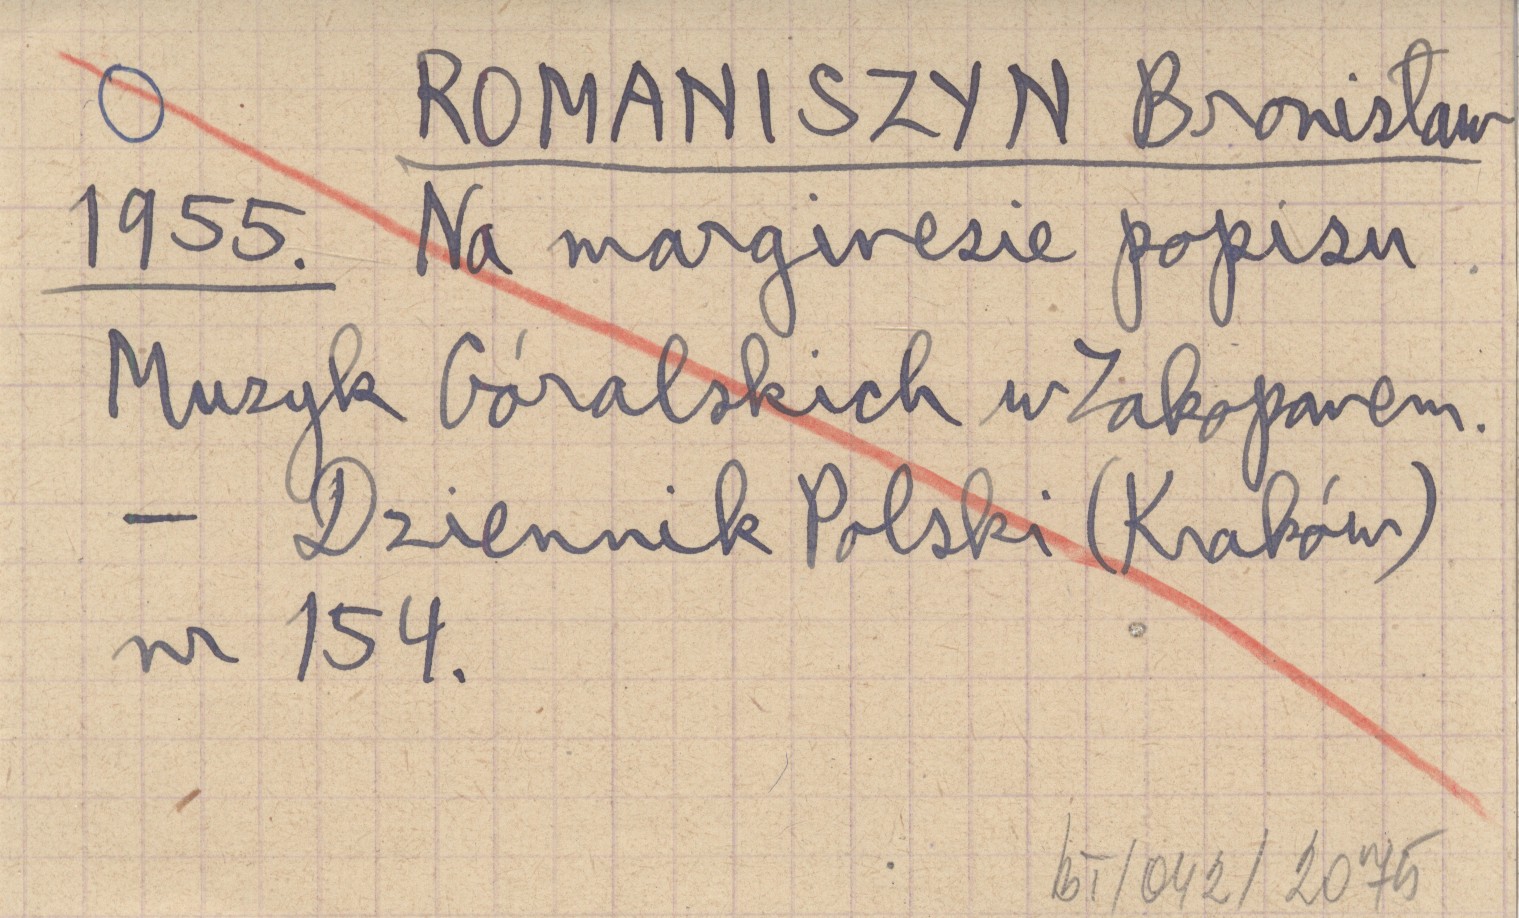 ROMANISZYN Bronisław
1955. Na marginesie popisu
Muzyk Góralskich w Zakopanem.
— Dziennik Polski (Kraków)
nr 154.
bT/042/2075